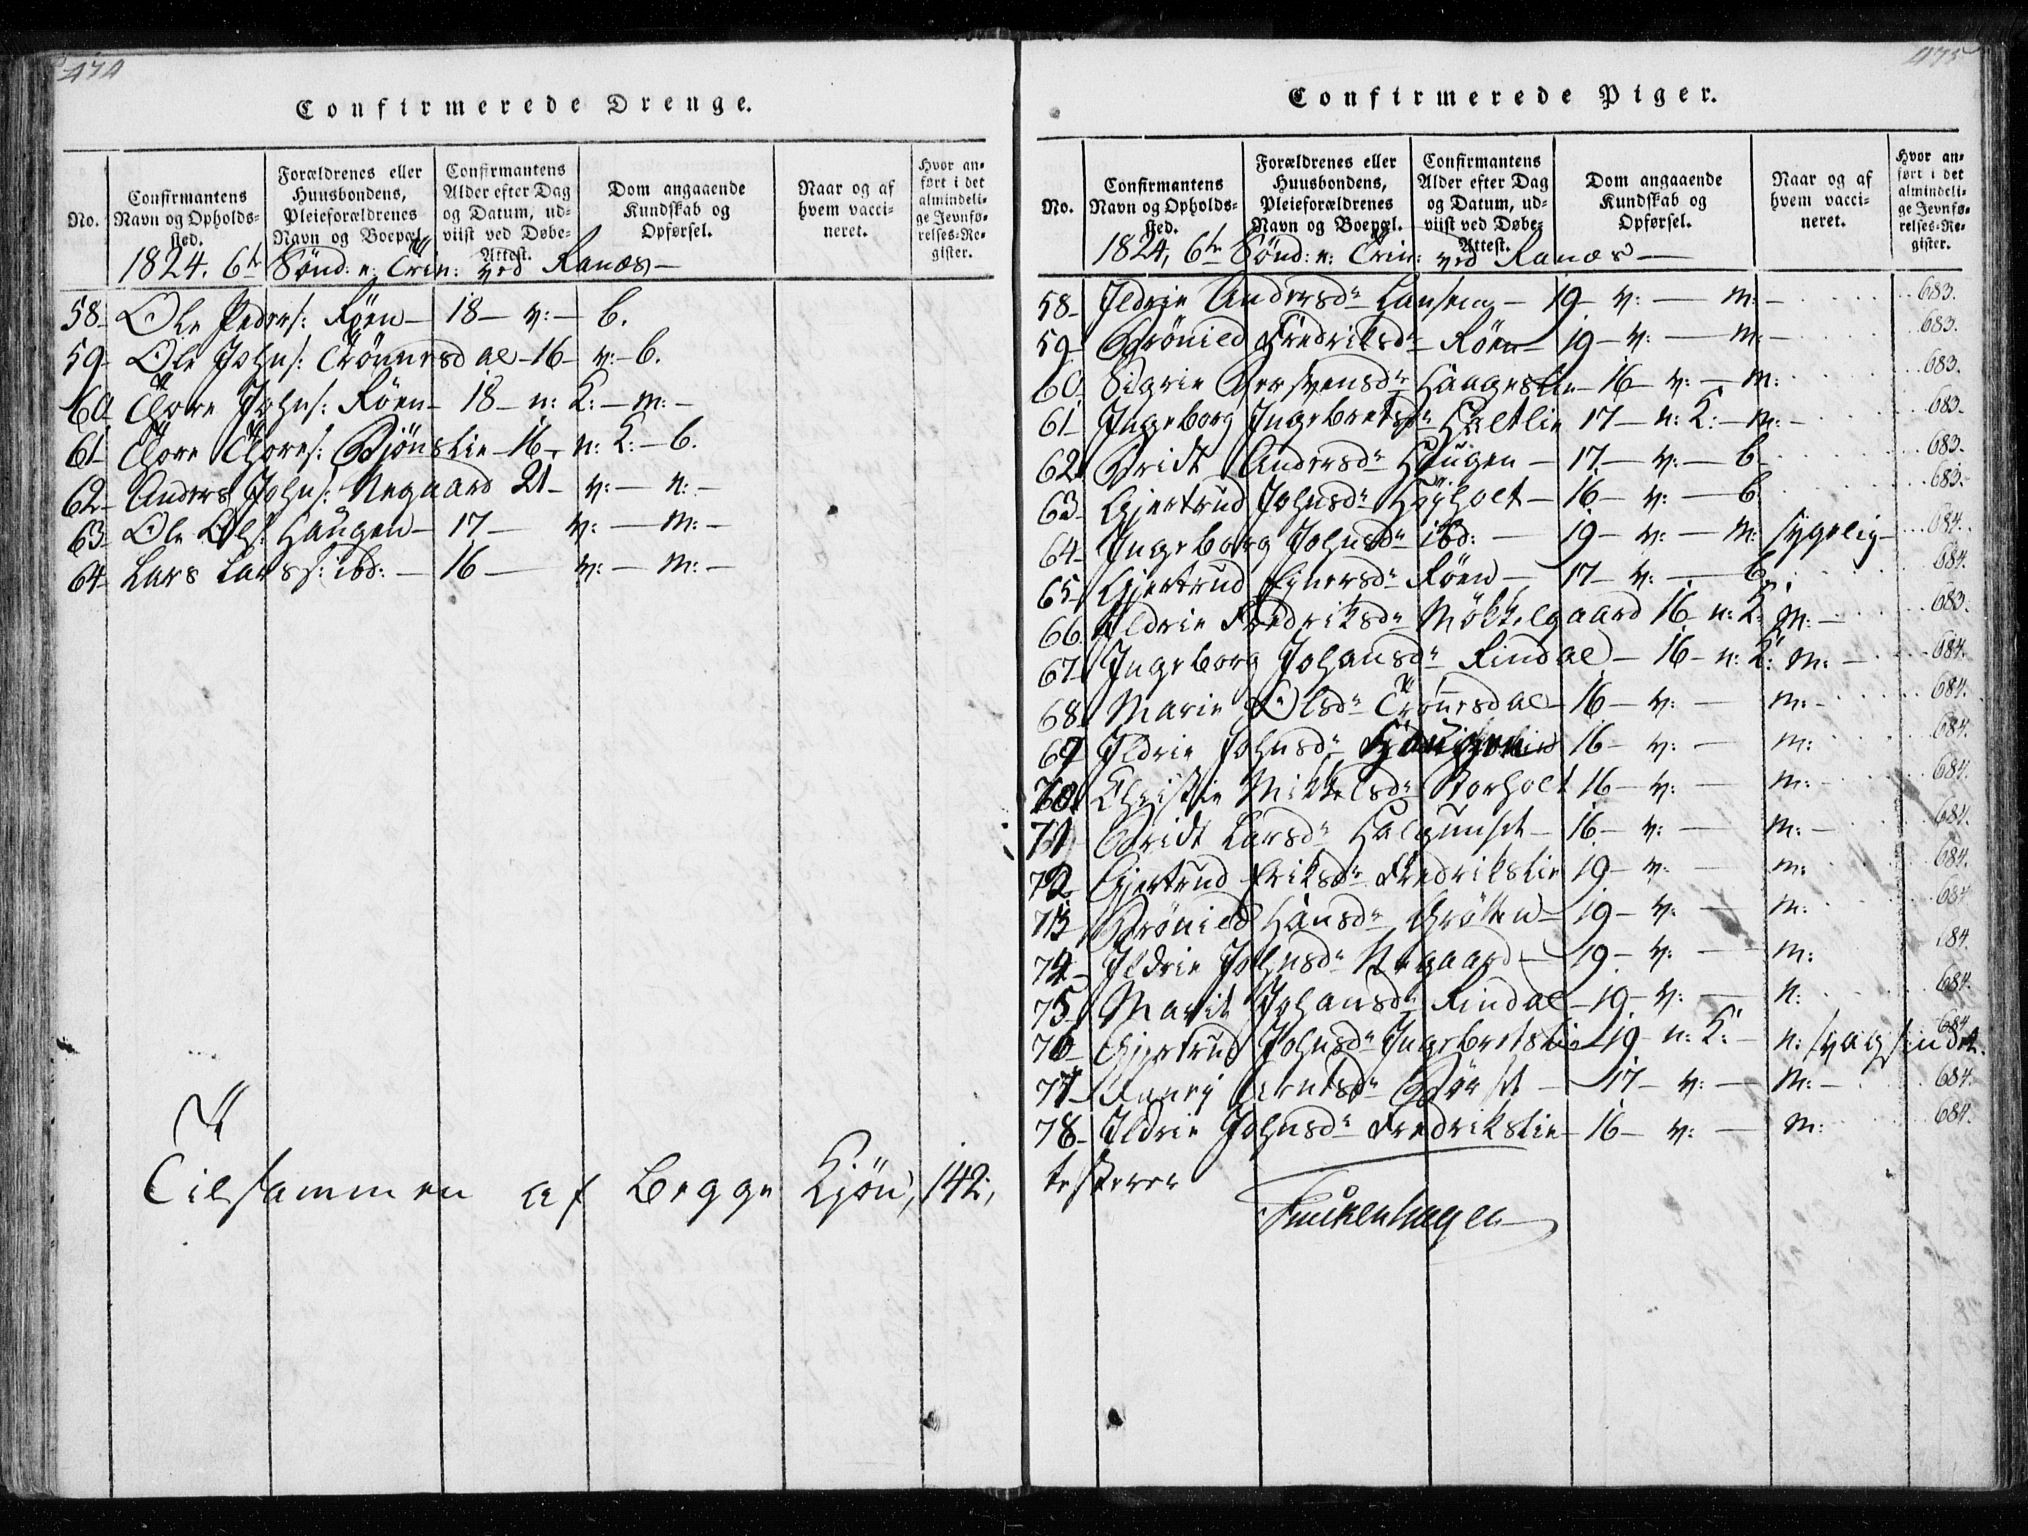 474
Confirmerede Drenge.
No.
Confirmantens Navn og Opholds-sted.
Forældrenes eller Huusbondens, Pleieforældrenes Navn og Boepæl.
Confirmantens Alder efter Dag og Datum, ud-viist ved Døbe-Attest.
Dom angaaende Kundskab og Opførsel.
Naar og af hvem vacci-neret.
Hvor an-ført i det almindeli-ge Jevnfø-relses-Re-gister.
1824. 6te Sønd: n: Trin: ved Ranæs-
58- Ole Peders: Röen- 18- v:- b.
59- Ole Johns: Trönnesdal-16- v:- b.
60 Tore Johns: Röen- 18- n: K:- m:-
61- Tore Tores: Björnslie-16- n: K:- b.
62- Anders Johns: Negaard 21- v:- n:-
63- Ole Ols: Haugen- 17- v:- m:-
64- Lars Larss: ibd:- 16- v:- m:-
Tilsammen af Begge Kjön, 142,
475
Confirmerede Piger.
No.
Confirmantens Navn og Opholds-sted.
Forældrenes eller Huusbondens, Pleieforældrenes Navn og Boepæl.
Confirmantens Alder efter Dag og Datum, ud-viist ved Døbe-Attest.
Dom angaaende Kundskab og Opførsel.
Naar og af hvem vacci-neret.
Hvor an-ført i det almindeli-ge Jevnfø-relses-Re-gister.
1824, 6te Sønd: n: Trin: ved Ranæs-
58- Ildrie Andersdr Lansem- 19- v:- m:- 683.
59- Brönild Fredriksdr Röen- 19- v:- m:- 683.
60- Sigrie Bersvensdr Haugeslie- 16- v:- m: 683.
61- Ingeborg Ingebretsdr Holtlie 17- n: K:- m:- 683.
62- Bridt Andersdr Haugen- 17- v:- b- 683.
63- Gjertrud Johnsdr Höyholt- 16- v:- b 683.
64- Ingeborg Johnsdr ibd:- 19- v:- m: sygelig- 684.
65- Gjertrud Einersdr Röen- 17- v:- b 684.
66 Ildrie Fredriksdr Mökkelgaard 16- n: K: m:- 683.
67- Ingeborg Johansdr Rindal- 16- n: K: m:- 684.
68- Marie Olsdr Trönnesdal- 16- v:- m:- 684.
69 Ildrie Johnsdr 16- v:- m: 684.
70 Christie Mikkelsdr Storholt 16- v:- m:- 684.
71 Bridt Larsdr Halgunset- 16- v:- m:- 684.
72- Gjertrud Eriksdr Fredrikslie 19- v:- m: 684.
73 Brönild Hansdr Grötten- 19- v:- m: 684
74- Ildrie Johnsdr Negaard- 19- v:- m: 684.
75- Marit Johansdr Rindal- 19- v:- n: 684.
76- Gjertrud Johnsdr Ingebretslie 19- n: K:- n: svagsindet. 684
77- Gerntsdr Börset- 17- v:- m:- 684.
78- Ildrie Johnsdr Fredrikslie- 16- v:- m: 684.
testerer
Finckenhagen